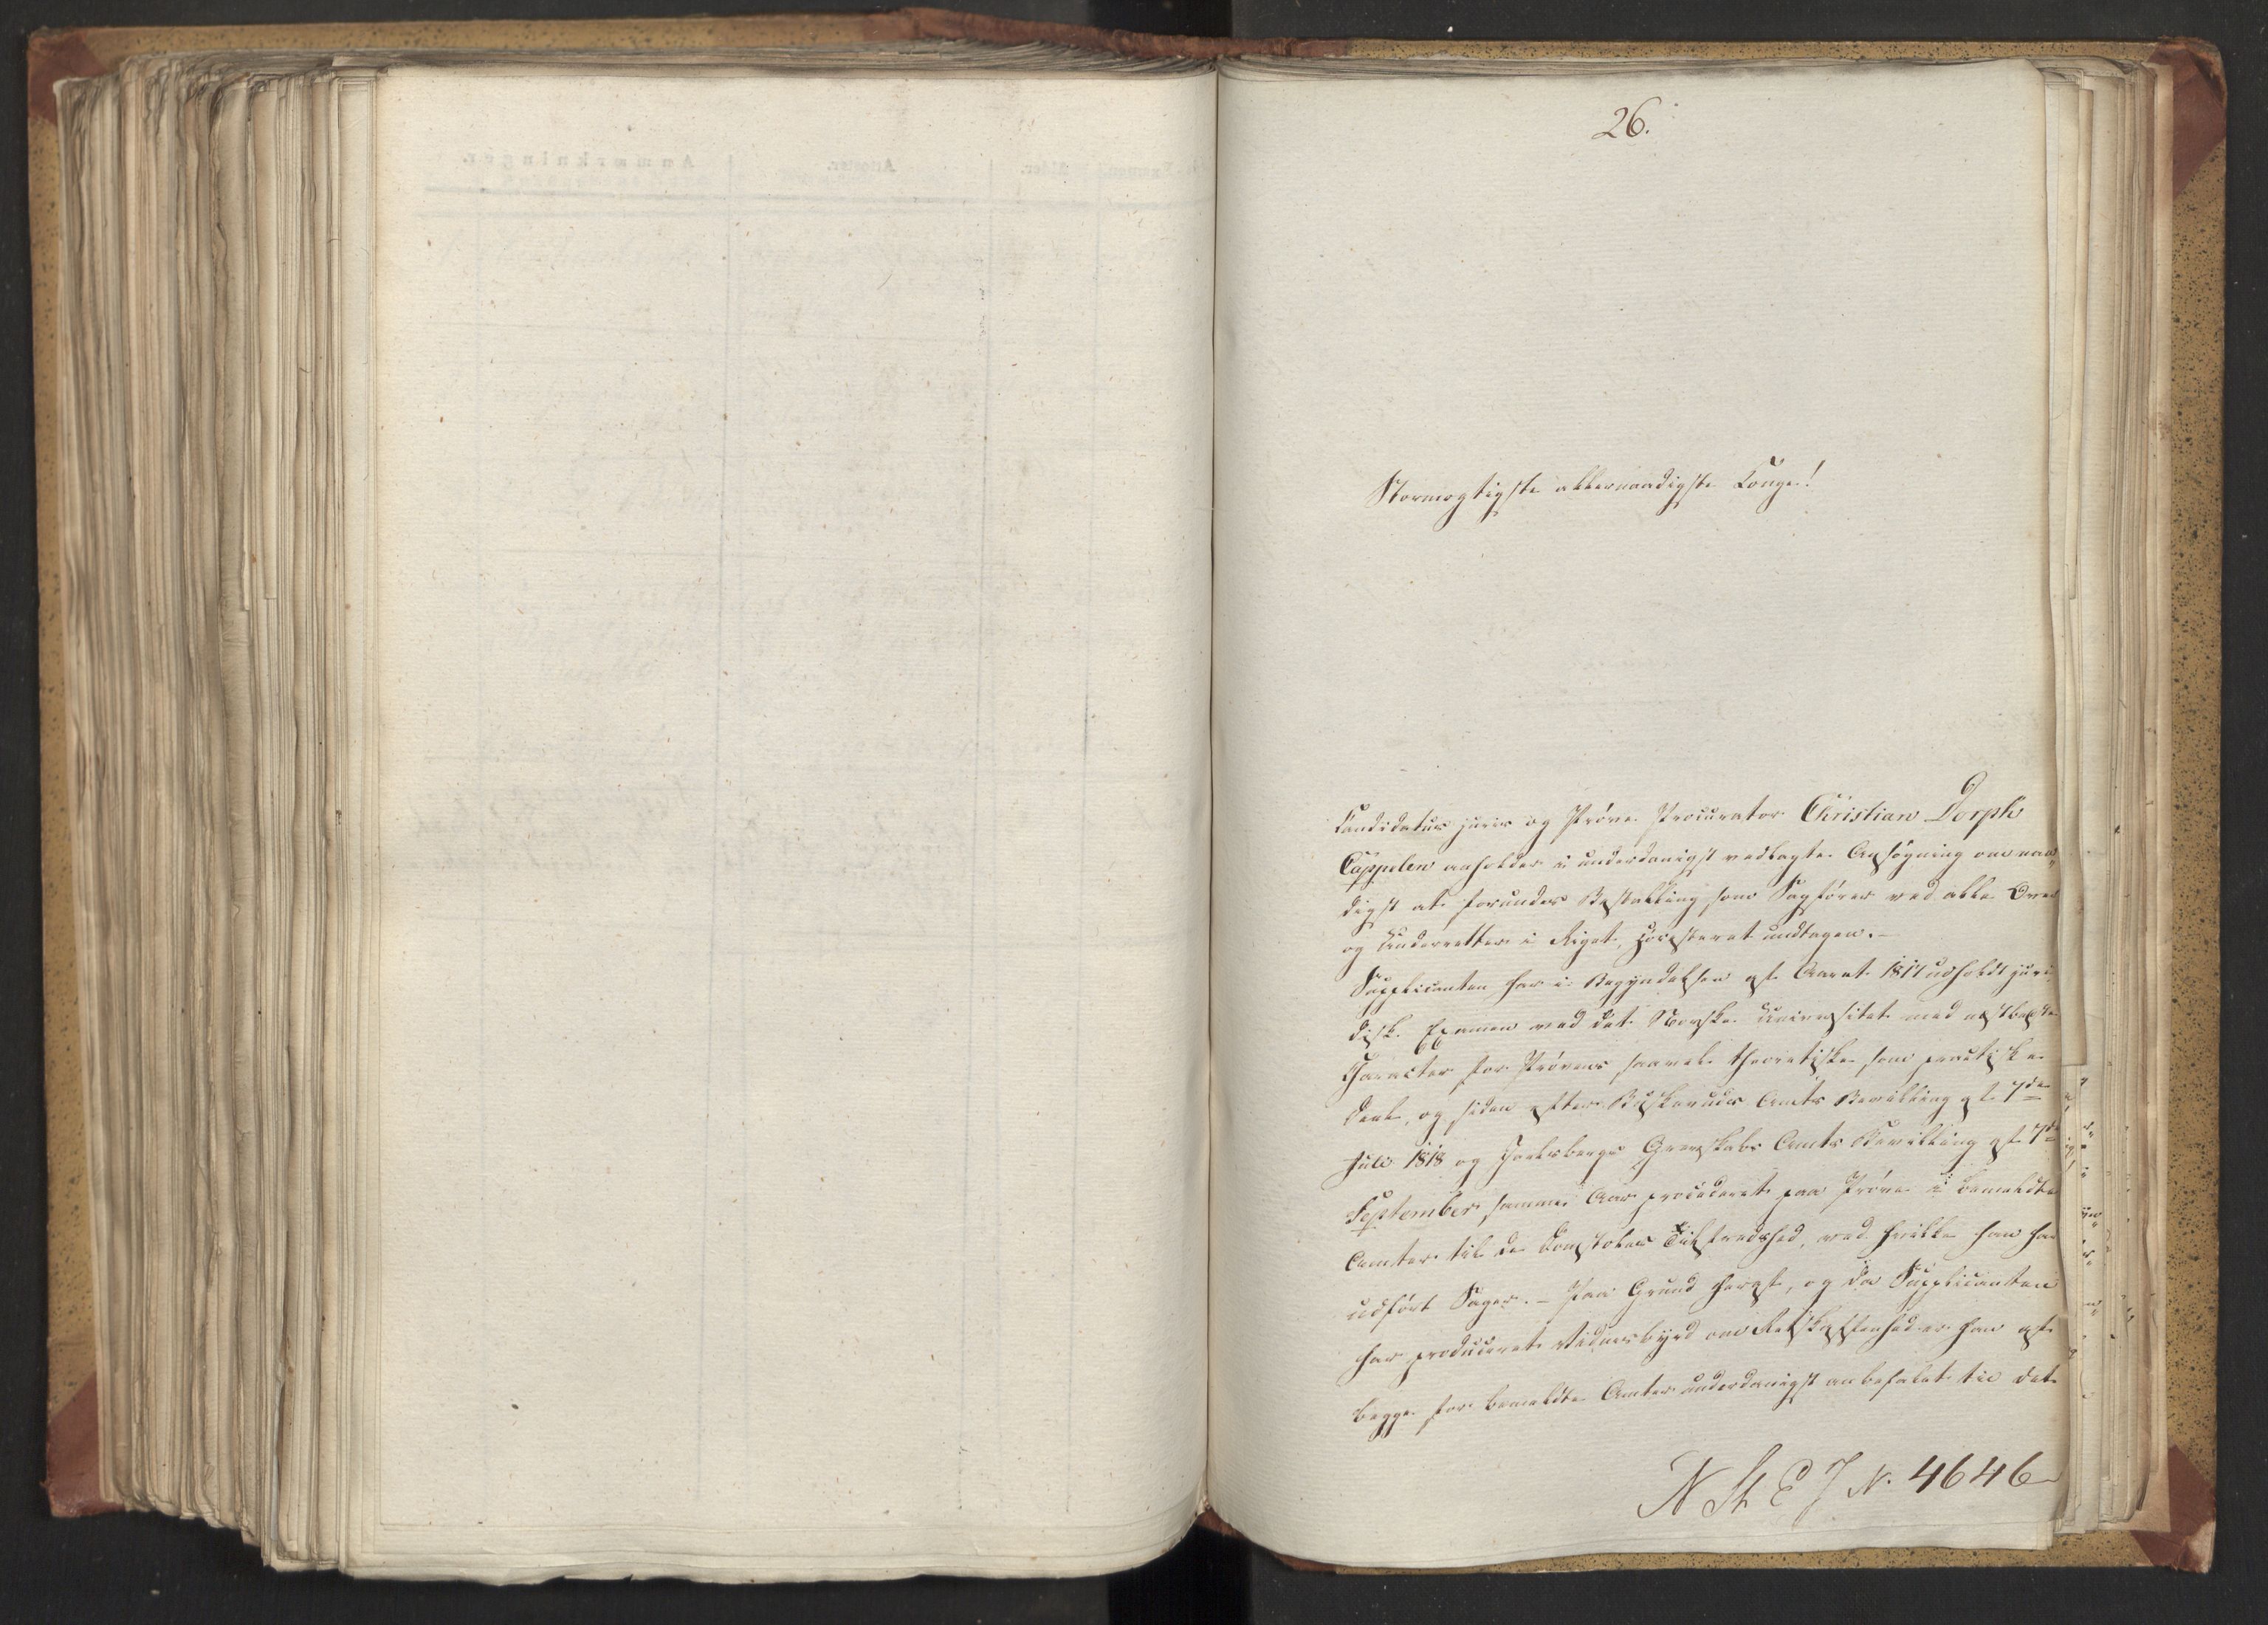 26.
Stormægtigste allernaadigste Konge!
Candidatus juris og Prøve Procurator Christian Dorph
Cappelen anholder i underdanigst vedlagte Ansøgning om naa„
digst at forundes Bestalling som Sagfører ved alle Over
og Underretter i Riget, Høiesteret undtagen.-
Supplicanten har i Begyndelsen af Aaret 1817 udholdt juri
disk Examen ved det Norske Universitet med næstbedste
Character for Prøvens saavel theoretiske som practiske
Deel, og siden efter Buskeruds Amts Bevilling af 7de
Julii 1818 og Jarlsbergs Grevskabs Amts Bevilling af 7de
September samme Aar procederet paa Prøve i bemeldte
Amter til de Domstoles Tilfredshed, ved hvilke han har
udført Sager. - Paa Grund heraf, og da Supplicanten
har produceret Vidnesbyrd om Retskaffenhed er han af
begge forbemeldte Amter underdanigst anbefalet til det
N St E J N. 4646